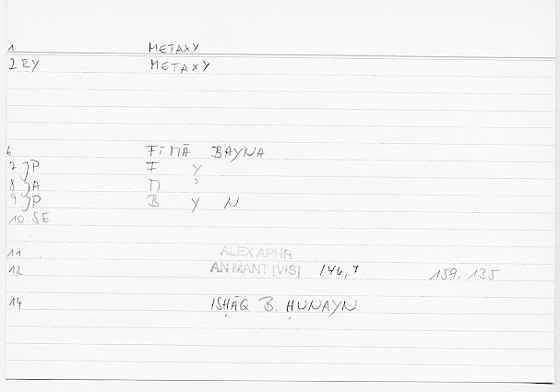 1 METAXY
2 RY METAXY
6 FĪMĀ BAYNA
7 JP F Y
8 JA M
9 JP B Y N
10 SE
11 ALEX APHR
12 AN MANT [VIS] 146, 159.135
14 ISḤĀQ B. ḤUNAYN